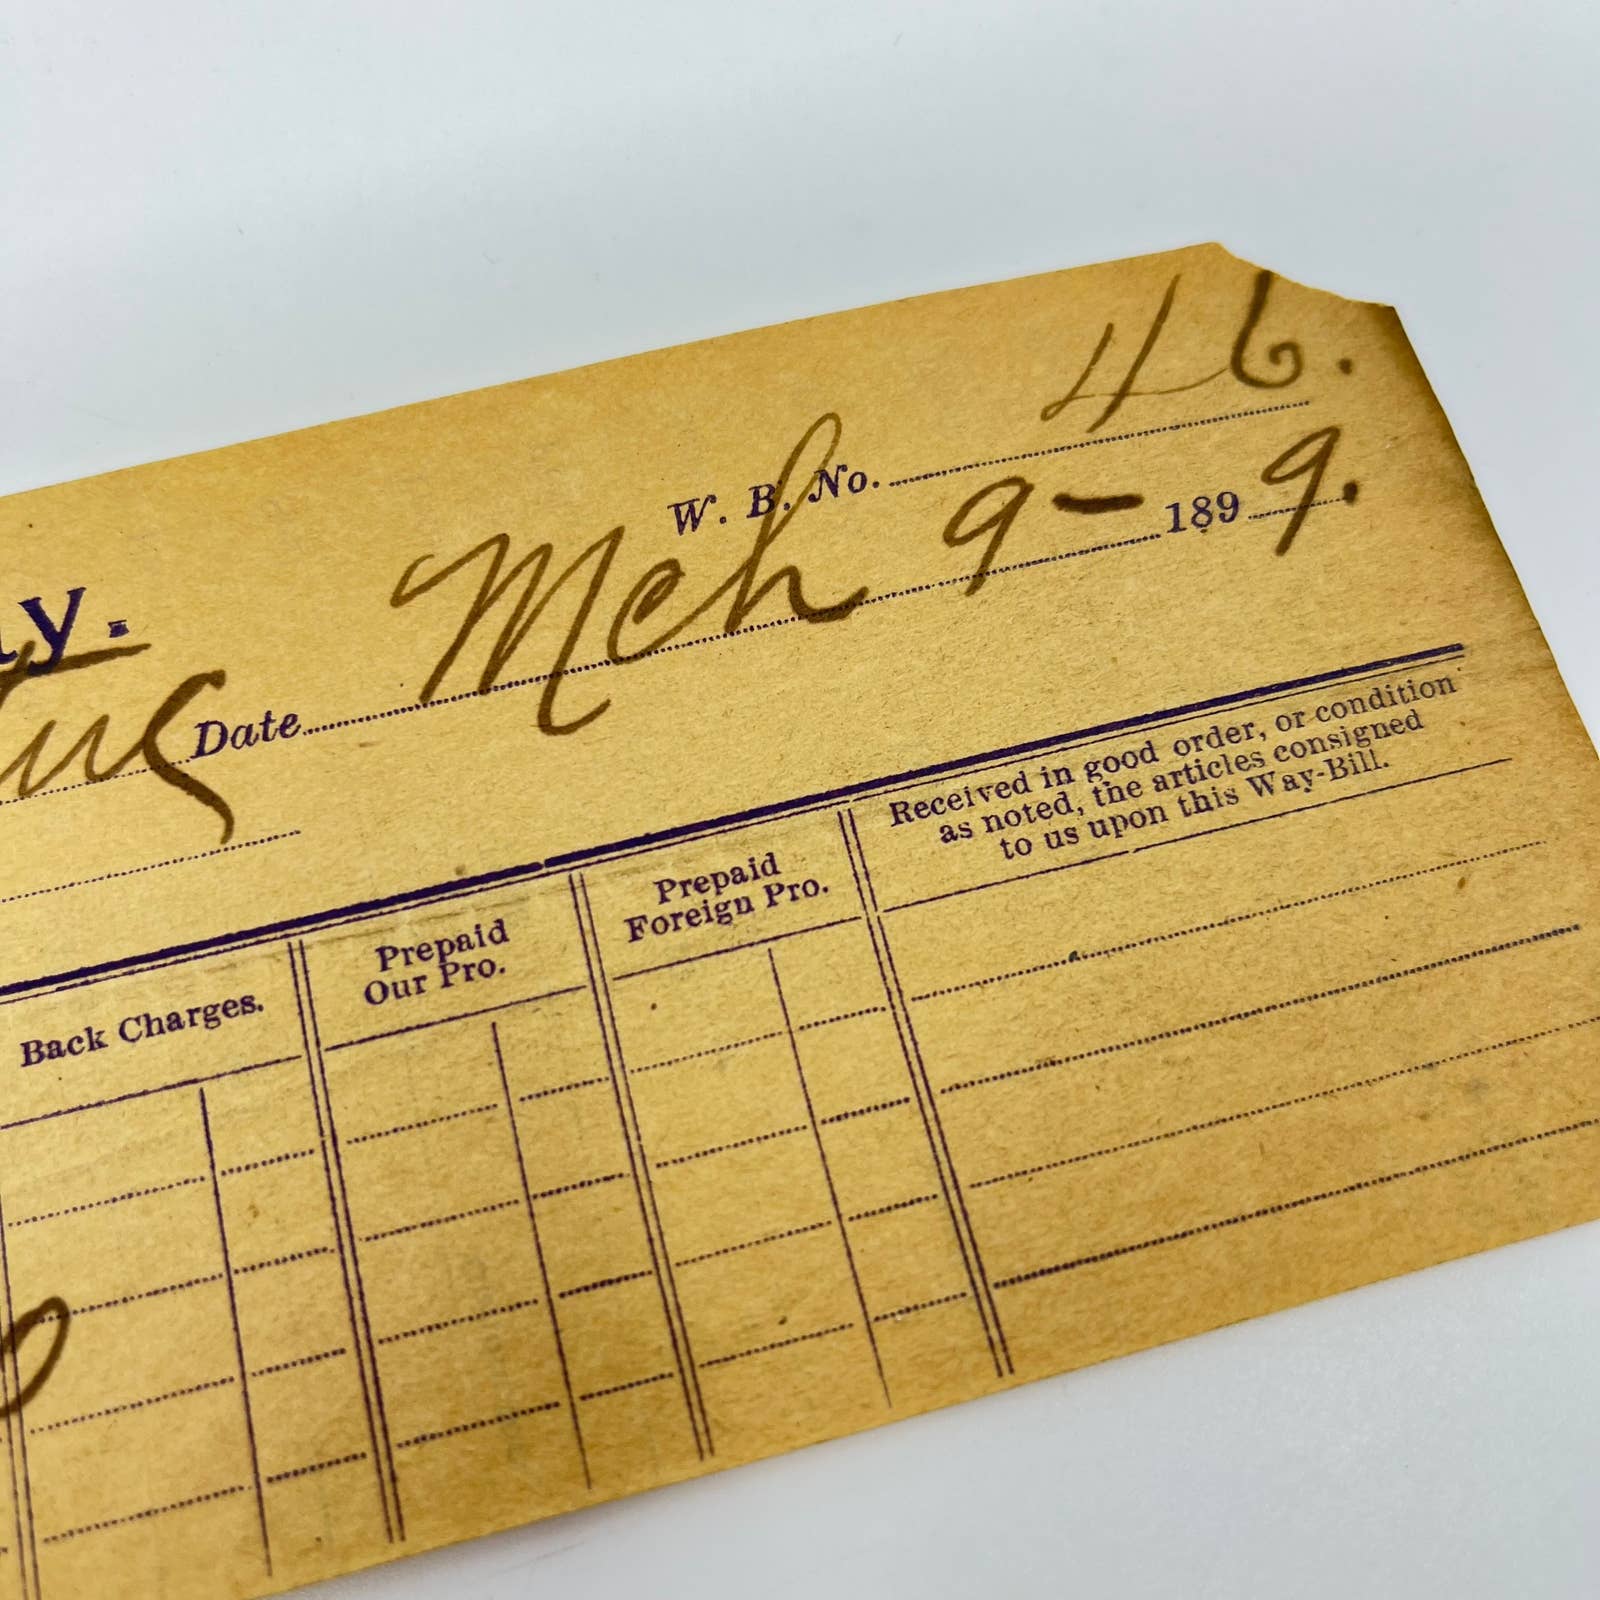 W. B. No. 46.
Date Mch 9 - 1899.
Back Charges.
Prepaid
Our Pro.
Prepaid
Foreign Pro.
Received in good order, or condition
as noted, the articles consigned
to us upon this Way-Bill.